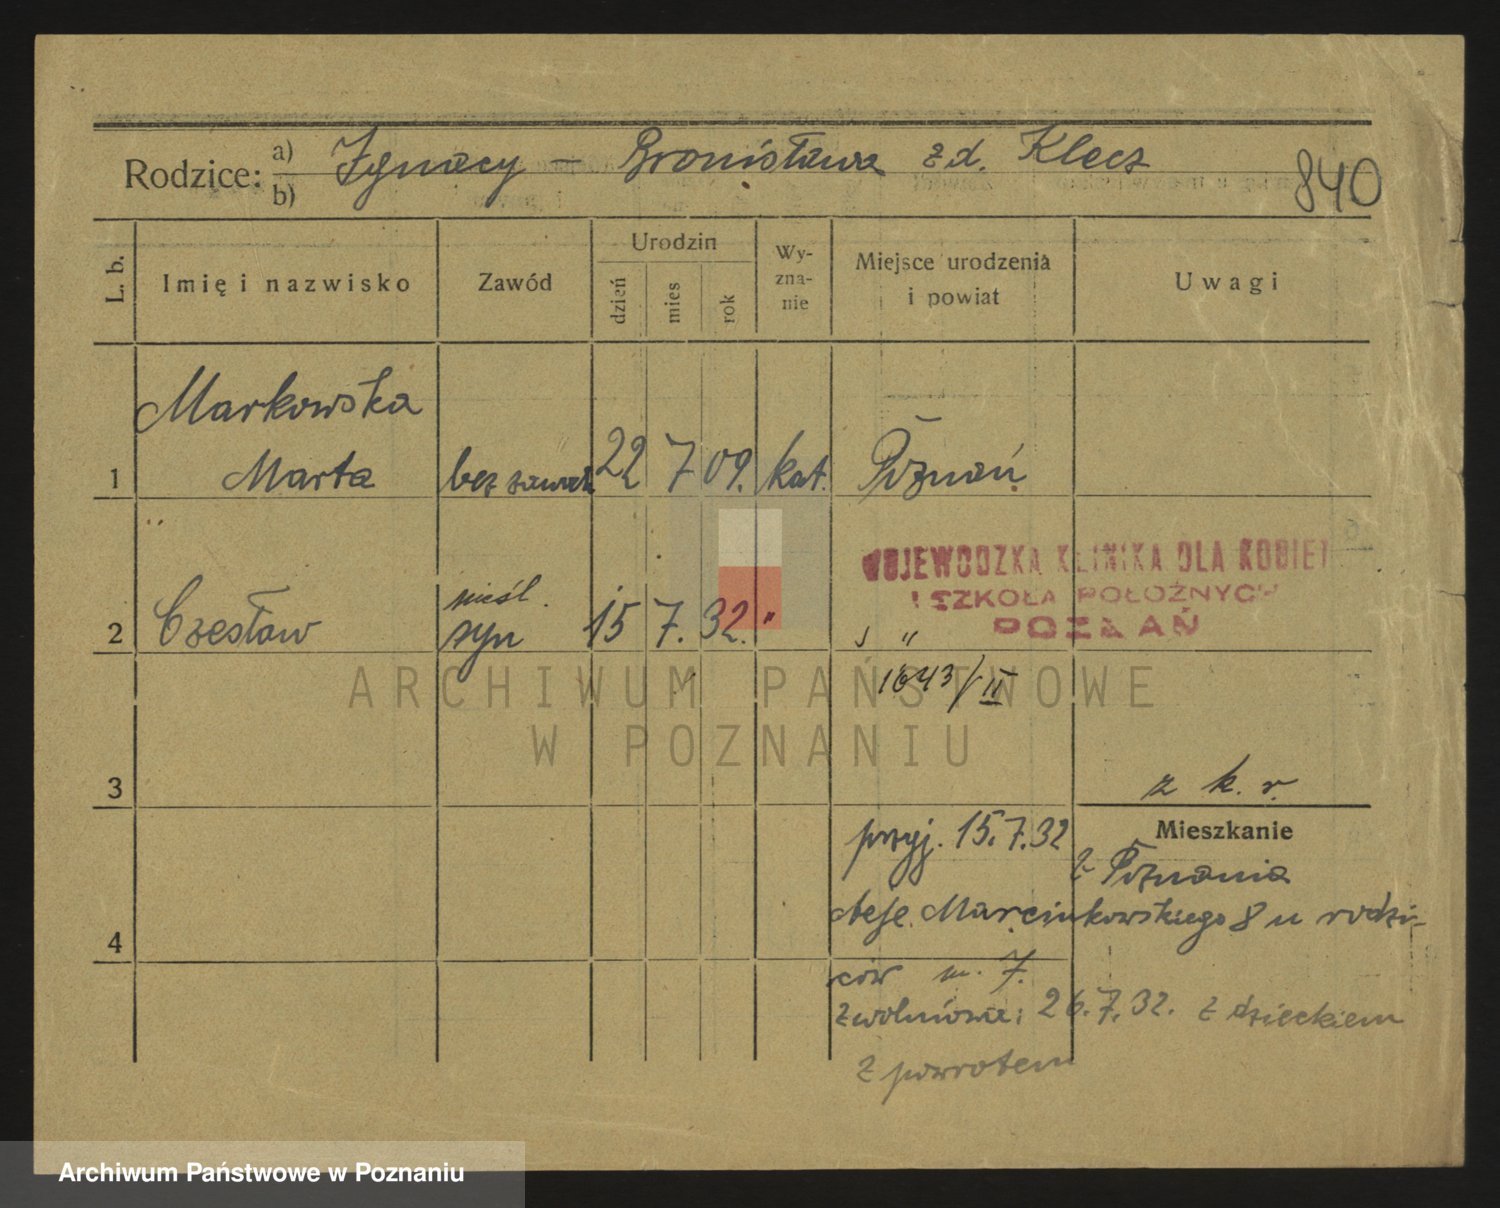 Rodzice: a) b) Ignacy – Bronisława z d. Klecz
840
L. b.
Imię i nazwisko
Zawód
Urodzin
dzień
mies
rok
Wy-
zna-
nie
Miejsce urodzenia
i powiat
Uwagi
Markowska
1 Marta bez zawod 22 7 09. kat. Poznań
WOJEWÓDZKA KLINIKA DLA KOBIET
I SZKOŁA POŁOŻNYCH
POZNAŃ
nieśl.
2 Czesław syn 15 7. 32. " "
1643/II
ARCHIWUM PAŃSTWOWE
W POZNANIU
3
z k. r.
Mieszkanie
przyj. 15.7.32
z Poznania
4
Marcinkowskiego 8 u rodzi-
ców m. 7.
zwolniona: 26.7.32. z dzieckiem
z powrotem
Archiwum Państwowe w Poznaniu